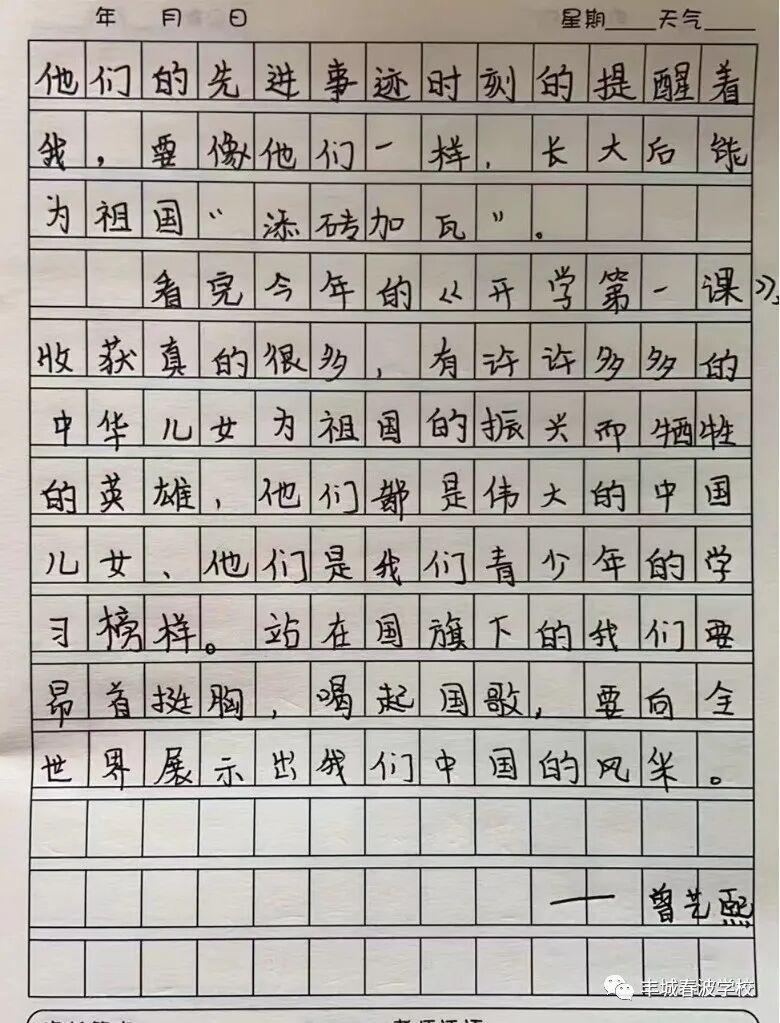 年 月 日 星期____天气____
他们的先进事迹时刻的提醒着
我，要像他们一样，长大后能
为祖国“添砖加瓦”。
看完今年的《开学第一课》，
收获真的很多，有许许多多的
中华儿女为祖国的振兴而牺牲
的英雄，他们都是伟大的中国
儿女、他们是我们青少年的学
习榜样。站在国旗下的我们要
昂首挺胸，喝起国歌，要向全
世界展示出我们中国的风采。
——曾艺熙
丰城春波学校